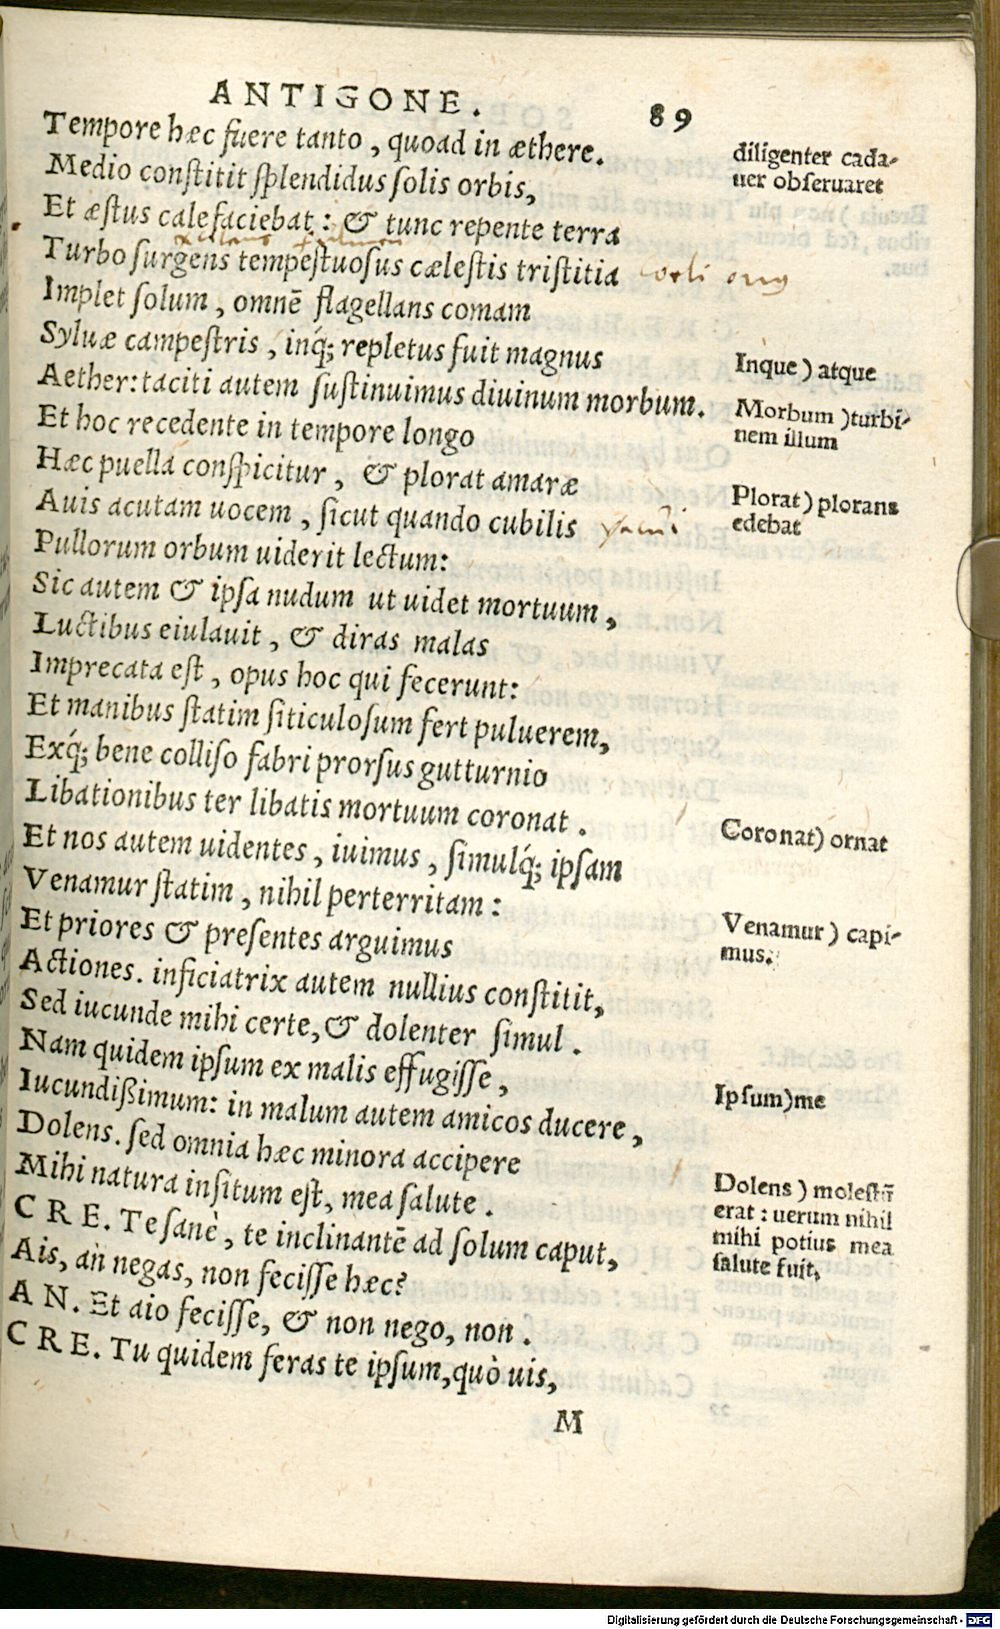 ANTIGONE. 89
Tempore hæc fuere tanto, quoad in æthere.
Medio constitit splendidus solis orbis,
Et æstus calefaciebat: & tunc repente terra
Turbo surgens tempestuosus cælestis tristitia
Implet solum, omnē flagellans comam
Syluæ campestris, inq́; repletus fuit magnus
Aether: taciti autem sustinuimus diuinum morbum.
Et hoc recedente in tempore longo
Hæc puella conspicitur, & plorat amaræ
Auis acutam uocem, sicut quando cubilis
Pullorum orbum uiderit lectum:
Sic autem & ipsa nudum ut uidet mortuum,
Luctibus eiulauit, & diras malas
Imprecata est, opus hoc qui fecerunt:
Et manibus statim siticulosum fert puluerem,
Exq́; bene colliso fabri prorsus gutturnio
Libationibus ter libatis mortuum coronat.
Et nos autem uidentes, iuimus, simulq́; ipsam
Venamur statim, nihil perterritam:
Et priores & presentes arguimus
Actiones. inficiatrix autem nullius constitit,
Sed iucunde mihi certe, & dolenter simul.
Nam quidem ipsum ex malis effugisse,
Iucundißimum: in malum autem amicos ducere,
Dolens. sed omnia hæc minora accipere
Mihi natura insitum est, mea salute.
CRE. Te sanè, te inclinantē ad solum caput,
Ais, an negas, non fecisse hæc?
AN. Et aio fecisse, & non nego, non.
CRE. Tu quidem feras te ipsum, quò uis,
M
diligenter cada-
uer obseruaret
Inque) atque
Morbum) turbi-
nem illum
Plorat) plorans
edebat
Coronat) ornat
Venamur) capi-
mus.
Ipsum) me
Dolens) molestū
erat: uerum nihil
mihi potius mea
salute fuit.
Digitalisierung gefördert durch die Deutsche Forschungsgemeinschaft - DFG